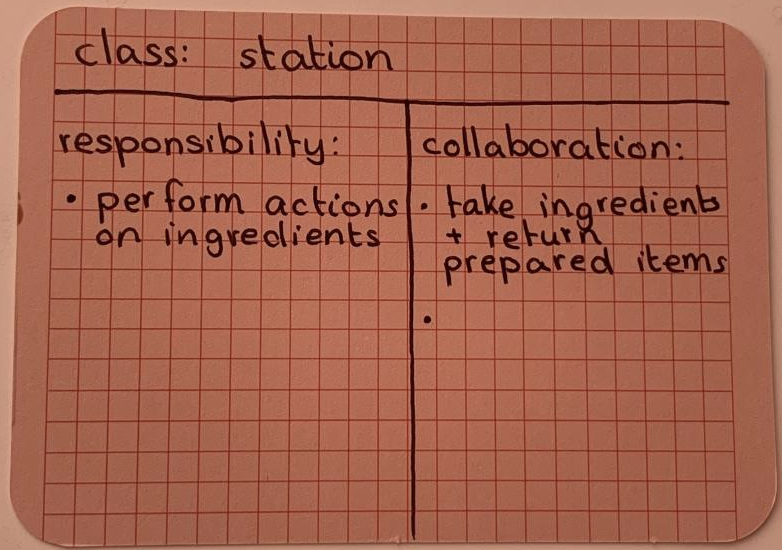 class: station
responsibility:
• perform actions
on ingredients
collaboration:
• take ingredients
+ return
prepared items
•